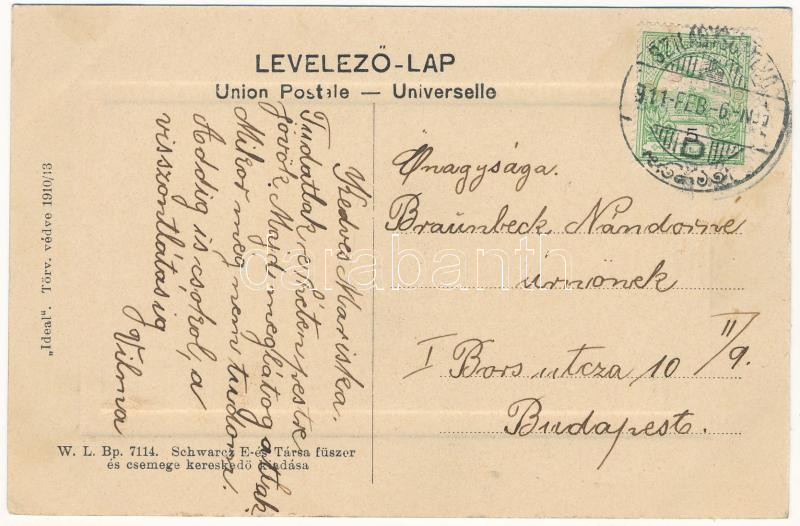 LEVELEZŐ-LAP
Union Postale — Universelle
SZILÁGYSO
911-FEB.-6-N
5
Kedves Mariska.
Tudatlak e héten pestre
jövök. Majd meglátogattak.
Mikor még nem tudom.
Addig is csokol, a
viszontlátásig
Vilma
Őnagysága.
Braunbeck Nándorné
úrnőnek
I Bors utcza 10 II/9.
Budapest.
„Ideal". Törv. védve 1910/13
W. L. Bp. 7114. Schwarcz E. és Társa füszer
és csemege kereskedő kiadása
darabanth